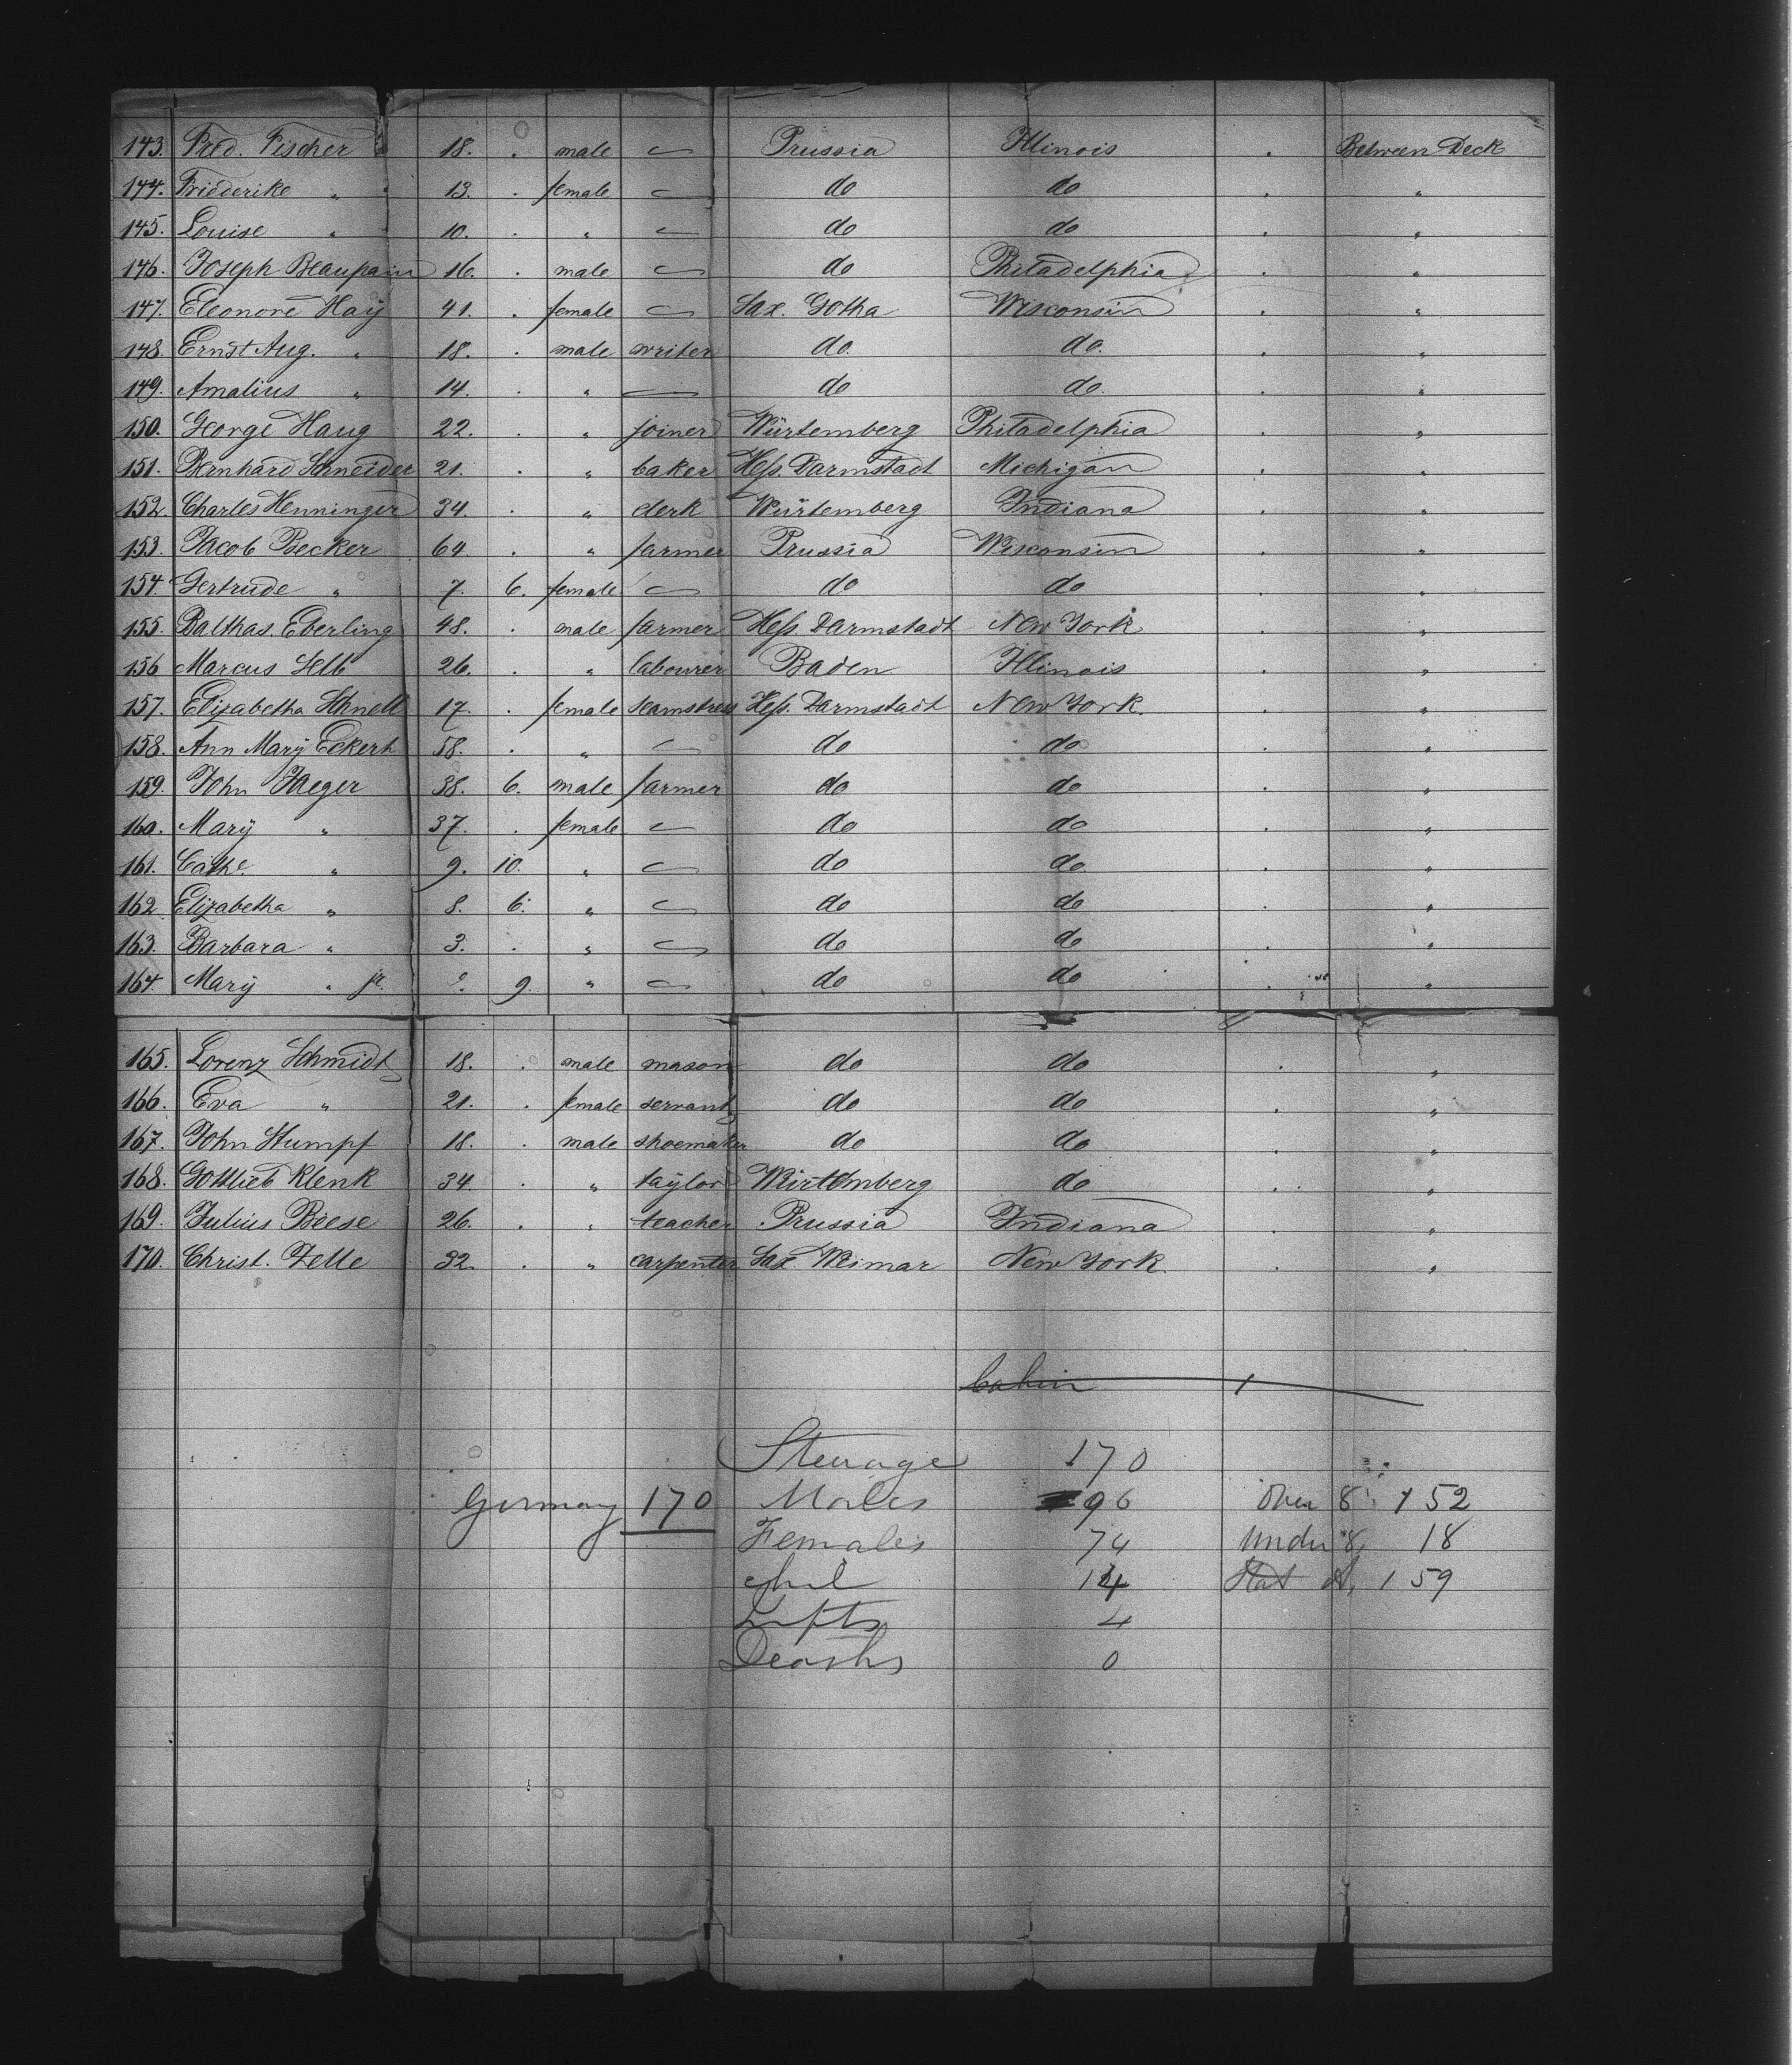 143. Fred. Fischer 18. . male — Prussia Illinois . Between Deck
144. Friederike " 13. . female — do do . "
145. Louise " 10. . " — do do . "
146. Joseph Beaupain 16. . male — do Philadelphia . "
147. Eleonore Haÿ 41. . female — Sax. Gotha Wisconsin . "
148. Ernst Aug. " 18. . male writer do. do. . "
149. Amalius " 14. . " — do do. . "
150. George Haug 22. . " joiner Würtemberg Philadelphia . "
151. Bernhard Schneider 21. . " baker Hess. Darmstadt Michigan . "
152. Charles Henninger 34. . " clerk Würtemberg Indiana . "
153. Jacob Becker 64 . " farmer Prussia Wisconsin . "
154. Gertrude " 7. 6. female — do do . "
155. Balthas. Eberling 48. . male farmer Hess. Darmstadt New York . "
156 Marcus Selb 26. . " labourer Baden Illinois . "
157. Elizabetha Schnell 17. . female seamstress Hess. Darmstadt New York. . "
158. Ann Marÿ Eckert 58. . " — do do . "
159. John Jaeger 38. 6. male farmer do do . "
160. Marÿ " 37. . female — do do . "
161. Cathe. " 9. 10. " — do do . "
162. Elizabetha " 8. 6. " — do do . "
163. Barbara " 3. . " — do do . "
164. Marÿ " jr. 9. " — do do . "
165. Lorenz Schmidt 18. . male mason do do . "
166. Eva " 21. . female servant do do . "
167. John Stumpf 18. . male shoemaker do do . "
168. Gottlieb Klenk 34. . " taÿlor Würtemberg do . "
169. Julius Beese 26. . " teacher Prussia Indiana . "
170. Christ. Zelle 32. . " carpenter Sax Weimar New York. . "
Cabin 1
Steerage 170
Germany 170 Males 96 Over 8 152
Females 74 Under 8, 18
Chil 14 Stat A, 159
Infts 4
Deaths 0